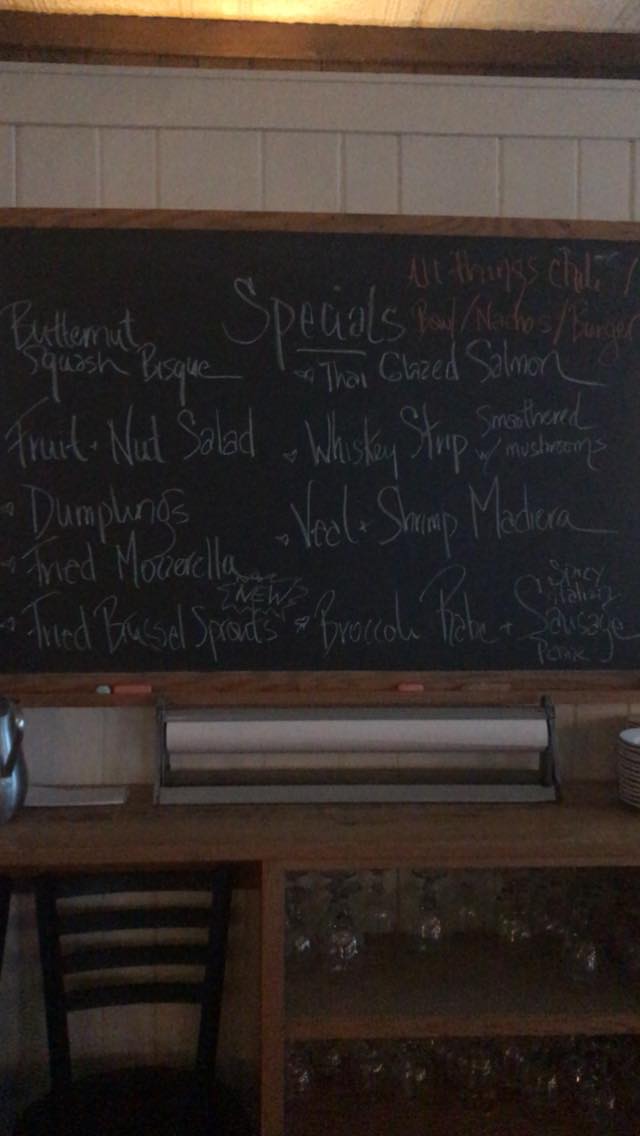 All things chili /
Bowl/Nachos/Burger
Specials
Butternut
Squash Bisque
Fruit + Nut Salad
Dumplings
Fried Mozzerella
NEW
Fried Brussel Sprouts
Thai Glazed Salmon
Whiskey Strip
Smoothered
w/ mushrooms
Veal + Shrimp Madiera
Broccoli Rabe + Sausage
Spicy
Italian
Pork